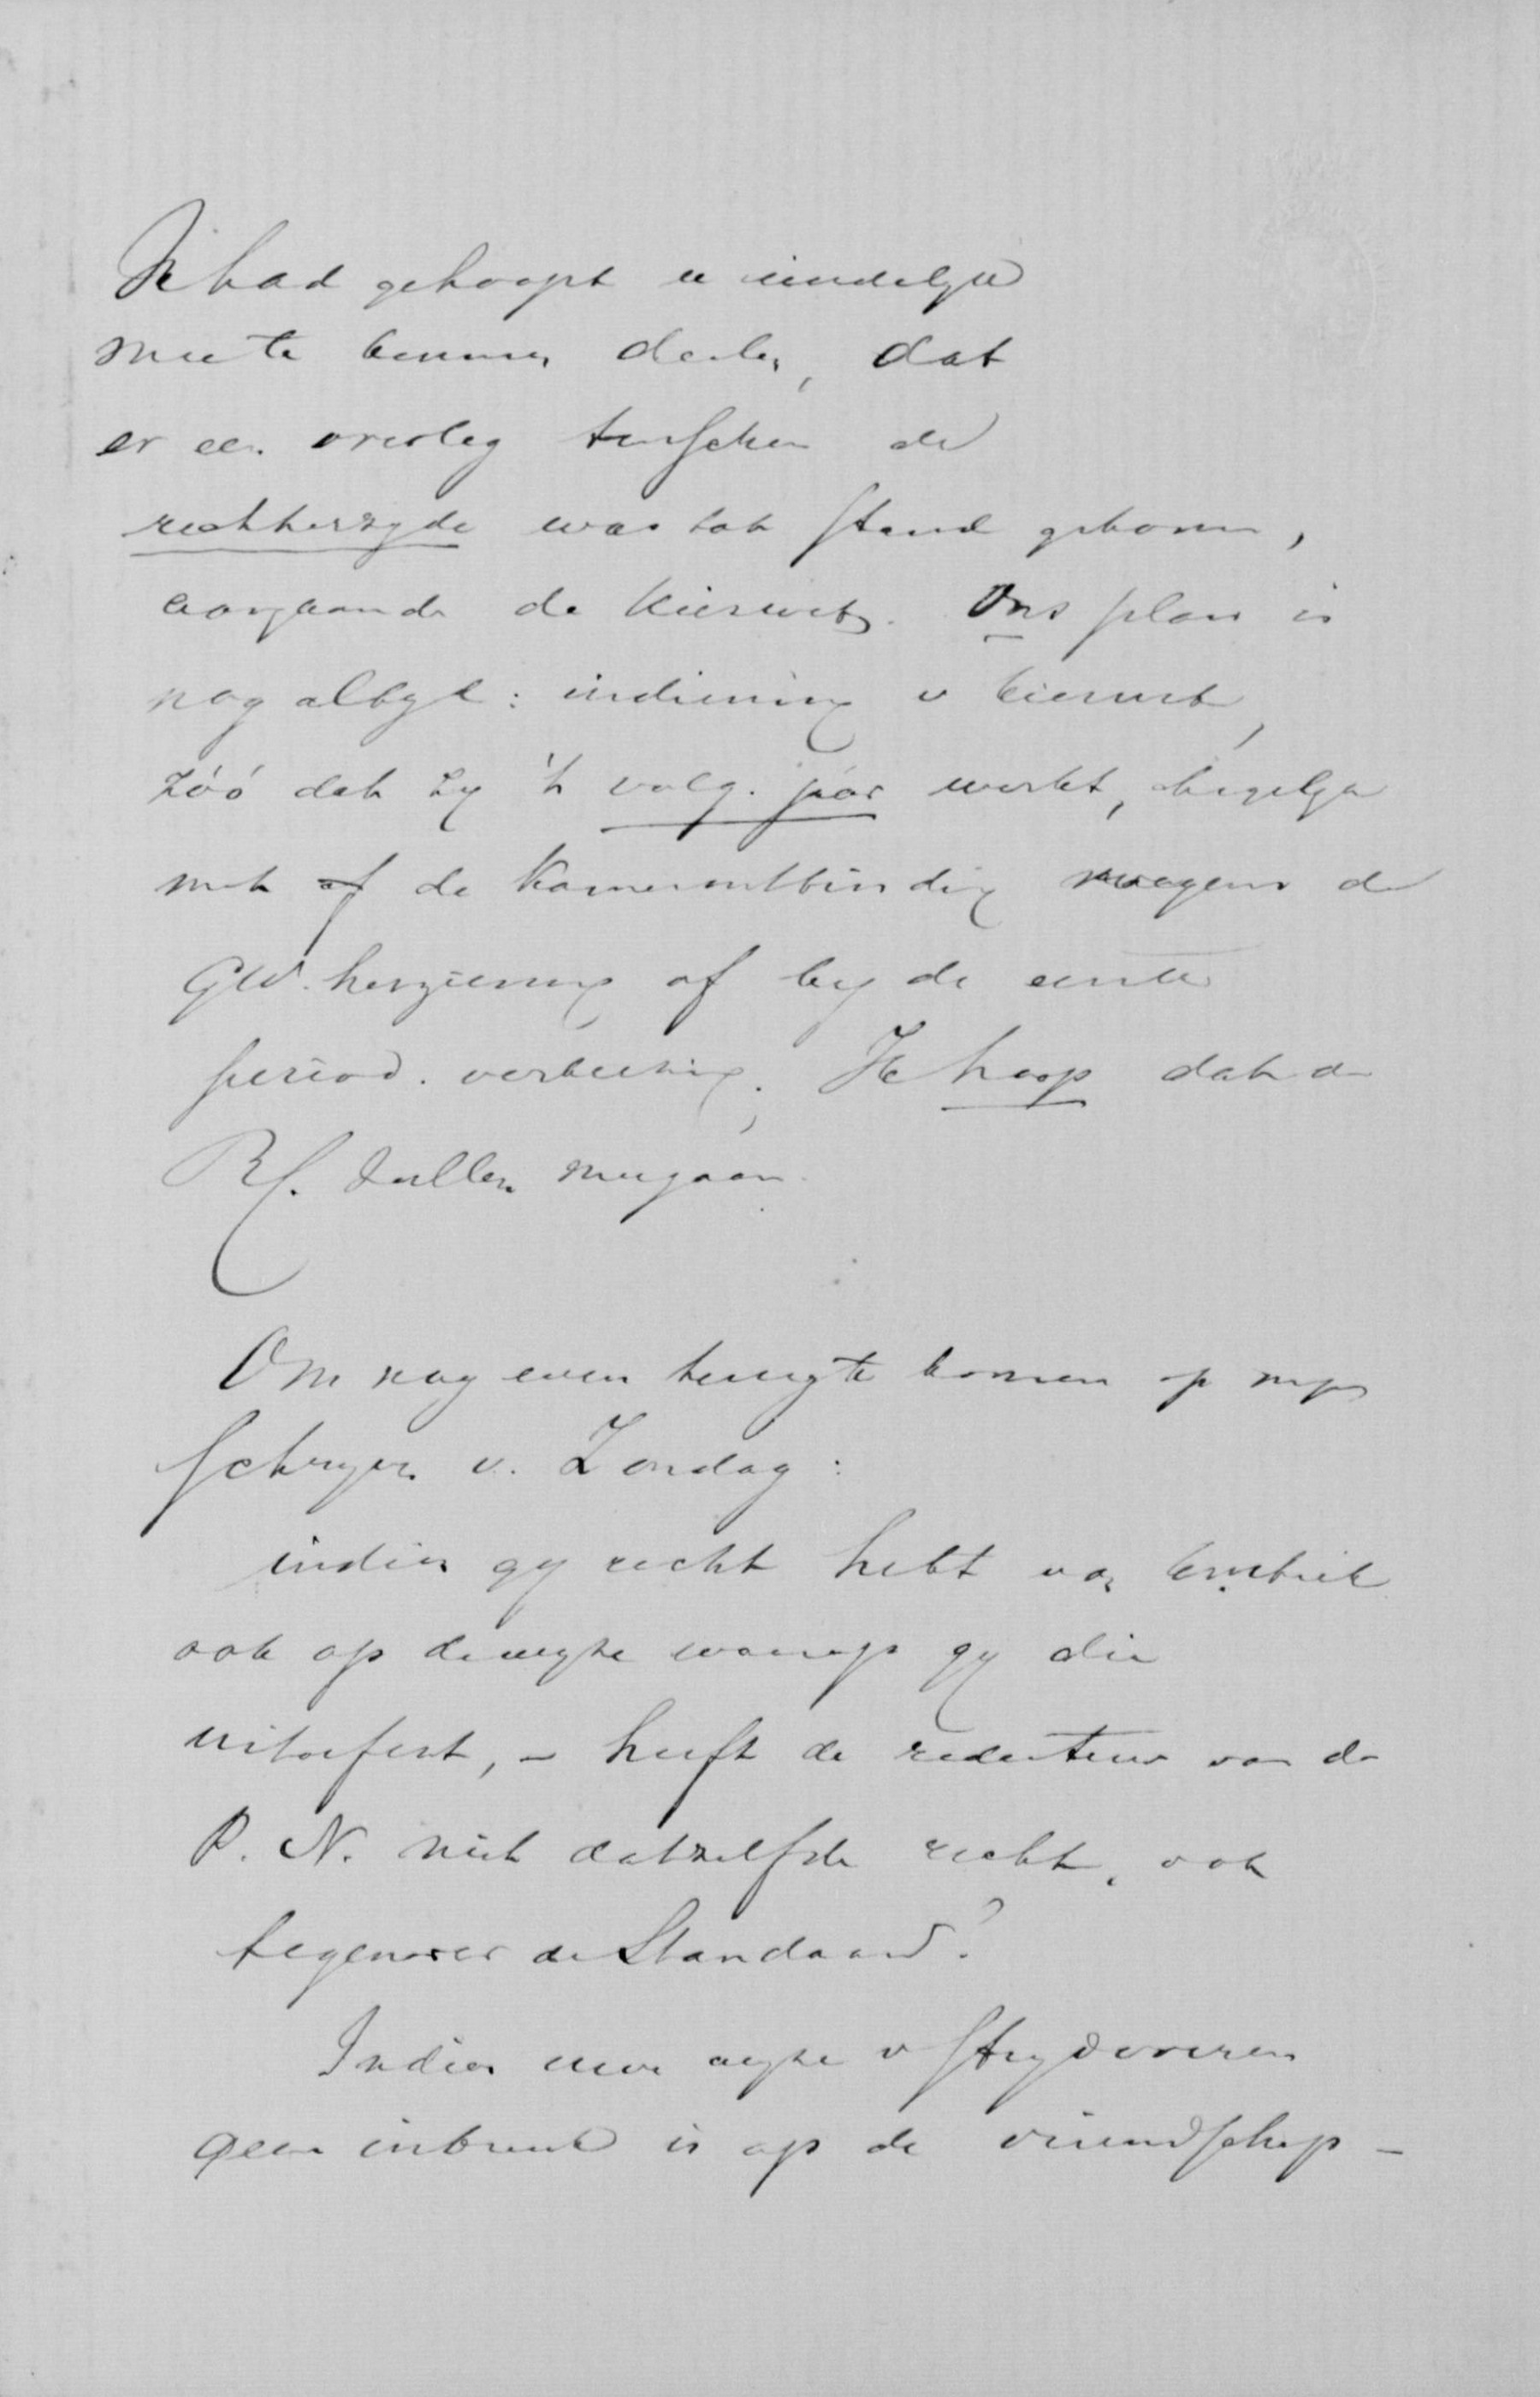 Ik had gehoopt u eindelyk
mee te kunnen deelen, dat
er een overleg tusschen de
rechterzyde was tot stand gekomen,
aangaande de Kieswet. Ons plan is
nog altyd: indiening v kieswet,
zóó dat zy 't volg. jaar werkt,
met of de Kamerontbinding wegens de
GW. herziening of by de eerste
period. verkiezing. Ik hoop dat de
RC. zullen meegaan.
Om nog even terug te komen op myn
schryven v. Zondag:
indien gy recht hebt van kritiek
ook op de wyze waarop gy die
uitoefent, - heeft de redacteur van de
P. N. niet datzelfde recht, ook
tegenover de Standaard?
Indien uwe wyze v strydvoeren
geen inbreuk is op de vriendschap -